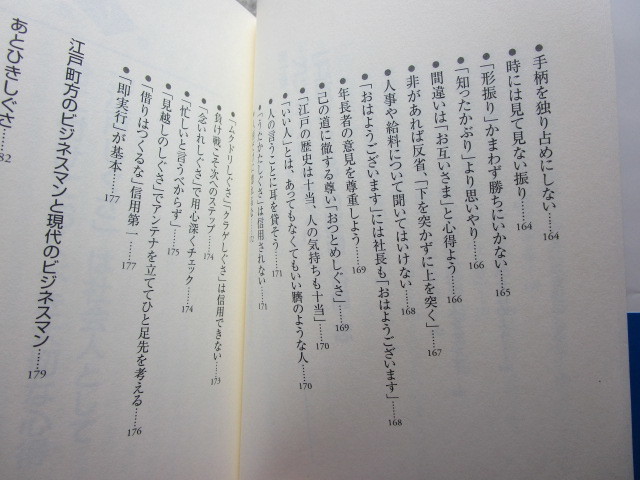 ●手柄を独り占めにしない……164
●時には見て見ない振り……164
●「形振り」かまわず勝ちにいかない……165
●「知ったかぶり」より思いやり……166
●間違いは「お互いさま」と心得よう……166
●非があれば反省、「下を突かずに上を突く」……167
●人事や給料について聞いてはいけない……168
●「おはようございます」には社長も「おはようございます」……168
●年長者の意見を尊重しよう……169
●「己の道に徹する尊い「おつとめしぐさ」……169
●「江戸の歴史は十当、人の気持ちも十当」……170
●「いい人」とは、あってもなくてもいい臍のような人……170
●人の言うことに耳を貸そう……171
●「うたかたしぐさ」は信用されない……171
●「ムクドリしぐさ」「クラゲしぐさ」は信用できない……173
●負け戦こそ次へのステップ……174
●「念いれしぐさ」で用心深くチェック……174
●「忙しいと言うべからず」……175
●「見越しのしぐさ」でアンテナを立ててひと足先を考える……176
●「借りはつくるな」信用第一……177
●「即実行」が基本……177
江戸町方のビジネスマンと現代のビジネスマン……179
あとひきしぐさ……182